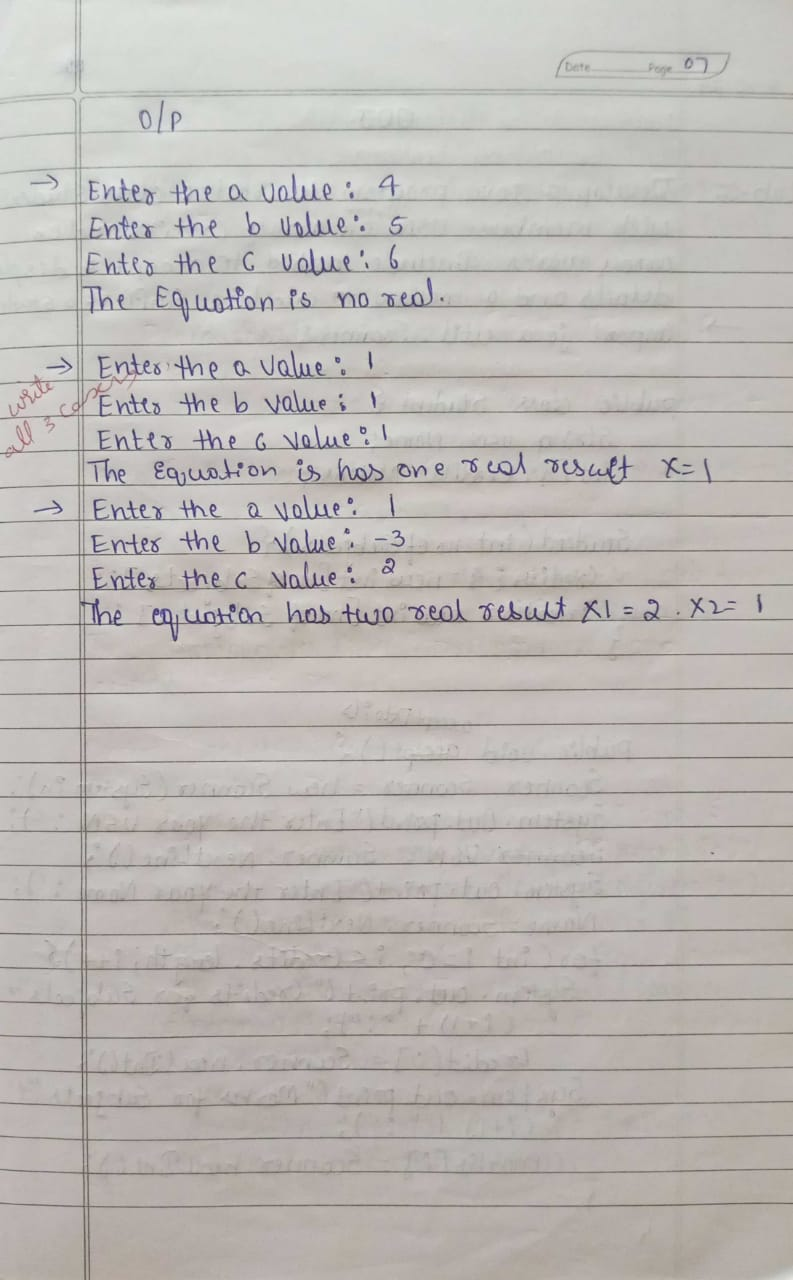 Date Page 07
O/P
→ Enter the a value : 4
Enter the b value : 5
Enter the c value : 6
The Equation is no real.
→ Enter the a value : 1
write
all 3 cases
Enter the b value : 1
Enter the c value : 1
The Equation is has one real result x=1
→ Enter the a value : 1
Enter the b value : -3
Enter the c value : 2
The equation has two real result x1 = 2 . x2= 1